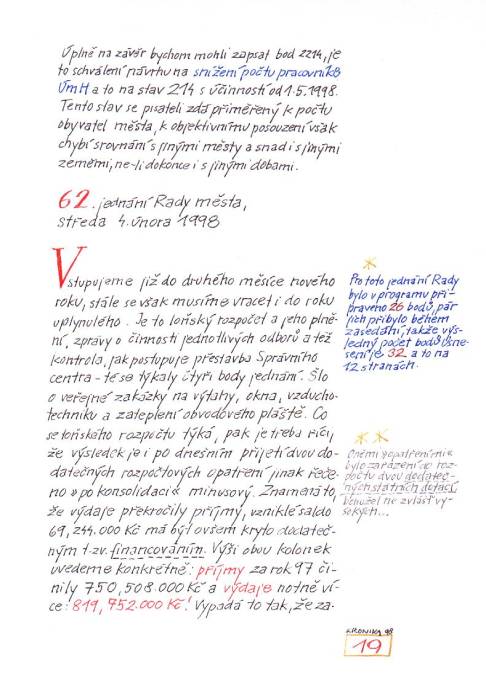 Úplně na závěr bychom mohli zapsat bod 2214, je
to schválení návrhu na snížení počtu pracovníků
ÚmH a to na stav 214 s účinností od 1.5.1998.
Tento stav se pisateli zdá přiměřený k počtu
obyvatel města, k objektivnímu posouzení však
chybí srovnání s jinými městy a snad i s jinými
zeměmi, ne-li dokonce i s jinými dobami.
62. jednání Rady města,
středa 4. února 1998
Vstupujeme již do druhého měsíce nového
roku, stále se však musíme vracet i do roku
uplynulého. Je to loňský rozpočet a jeho plně-
ní, zprávy o činnosti jednotlivých odborů a též
kontrola, jak postupuje přestavba Správního
centra - té se týkaly čtyři body jednání. Šlo
o veřejné zakázky na výtahy, okna, vzducho-
techniku a zateplení obvodového pláště. Co
se loňského rozpočtu týká, pak je třeba říci,
že výsledek je i po dnešním přijetí dvou do-
datečných rozpočtových opatření jinak řeče-
no »po konsolidaci« minusový. Znamená to,
že výdaje překročily příjmy, vzniklé saldo
69,244.000 Kč má být ovšem kryto dodateč-
ným t.zv. financováním. Výši obou kolonek
uvedeme konkrétně: příjmy za rok 97 či-
nily 750,508.000 Kč a výdaje notně ví-
ce: 819,752.000 Kč! Vypadá to tak, že za-
*
Pro toto jednání Rady
bylo v programu při-
praveno 26 bodů, pár
jich přibylo během
zasedání, takže výs-
ledný počet bodů usne-
sení je 32 a to na
12 stranách.
**
Oněmi opatřeními
bylo zařazení do roz-
počtu dvou dodateč-
ných státních dotací,
bohužel ne zvlášť vy-
sokých...
KRONIKA 98
19